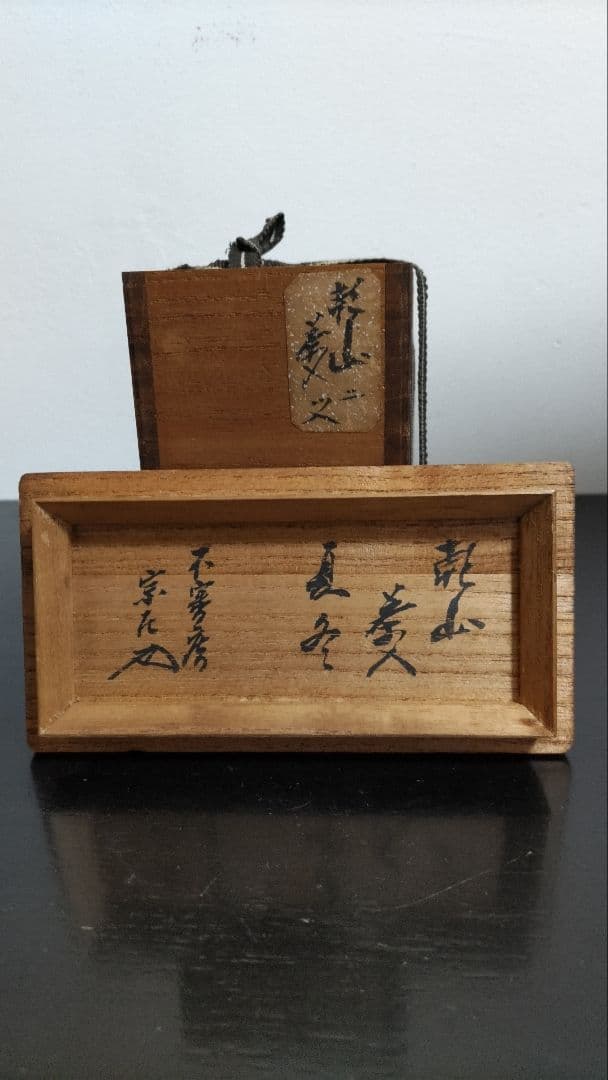 乾山
茶入
二ツ入
乾山
茶入
夏冬
不審庵
宗左